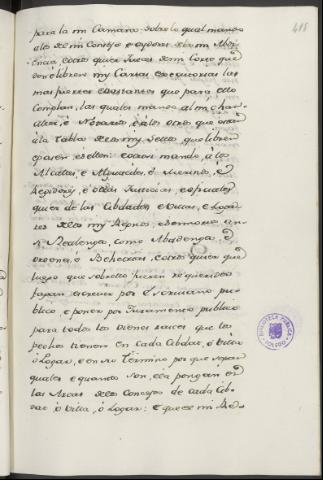 415
para la mi Camara: sobre lo qual mando
a los de mi Consejo e oydores de la mi Abdi-
encia, e otros quier Jueces de mi Corte que
den e libren my Cartas executorias las
mas fuertes e bastantes que para ello
Complan, las quales mando al mi chan-
celler, e Notarios, e a los otros que estan
a la tabla de los my Sellos que libren
e pasen e sellen: e otrosi mando, a los
Alcalles, e Alguaciles, e Merinos, e
Regidores, e otras Justicias, e oficiales
quier de las Cibdades e Villas, e Logar
res de los my Regnos, e Sennorios an-
si Realenga, como Abadenga e
ordenes, e Behetrias, e otros quier que
luego que sobrello fueren requeridos
fagan escreuir por Escriuano pu-
blico, e poner por Juramento publico
para todos los vienes raices que los
pecheros tienen en Cada Cibdat, o Villa
o Logar, e en su Termino por que sepan
quales e quantos son, e la pongan en
las Arcas de los Concejos de cada Cib-
dat o Villa, o Logar: E que de mi Re-
BIBLIOTECA PUBLICA
TOLEDO